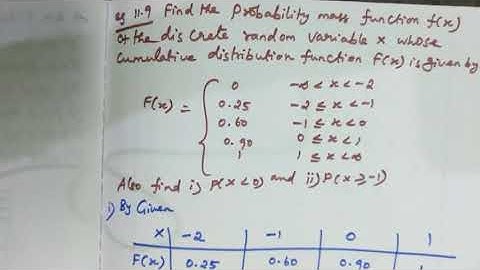 eg 11.9 Find the Probability mass function f(x)
of the discrate random variable x whose
Cumulative distribution function F(x) is given by
F(x) = { 0 -∞ < x < -2
0.25 -2 ≤ x < -1
0.60 -1 ≤ x < 0
0.90 0 ≤ x < 1
1 1 ≤ x < ∞
Also find i) P(x < 0) and ii) P(x ≥ -1)
i) By Given
x -2 -1 0 1
F(x) 0.25 0.60 0.90 1